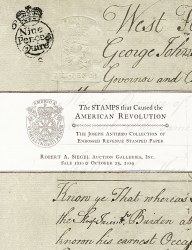 West F
Nine
Pence
Quire
George Johns
Governor and C
AMERICA
The STAMPS that Caused the
AMERICAN REVOLUTION
The Joseph Antizzo Collection of
Embossed Revenue Stamped Paper
Robert A. Siegel Auction Galleries, Inc.
Sale October 29, 2009
Know ye That whereas
the Ship
Burden a
known his earnest Occa